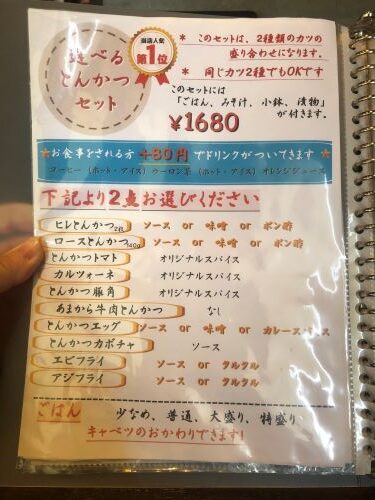 当店人気
第1位
選べる
とんかつ
セット
* このセットは、2種類のカツの
盛り合わせになります。
* 同じカツ2種でもOKです
このセットには
「ごはん、みそ汁、小鉢、漬物」
が付きます。
¥1680
★お食事をされる方 +80円 でドリンクがついてきます★
コーヒー(ホット・アイス) ウーロン茶(ホット・アイス) オレンジジュース
下記より2点お選びください
ヒレとんかつ2枚 ソース or 味噌 or ポン酢
ロースとんかつ140g ソース or 味噌 or ポン酢
とんかつトマト オリジナルスパイス
カルツォーネ オリジナルスパイス
とんかつ豚角 オリジナルスパイス
あまから牛肉とんかつ なし
とんかつエッグ ソース or 味噌 or カレースパイス
とんかつカボチャ ソース
エビフライ ソース or タルタル
アジフライ ソース or タルタル
ごはん 少なめ、普通、大盛り、特盛り
キャベツのおかわりできます!